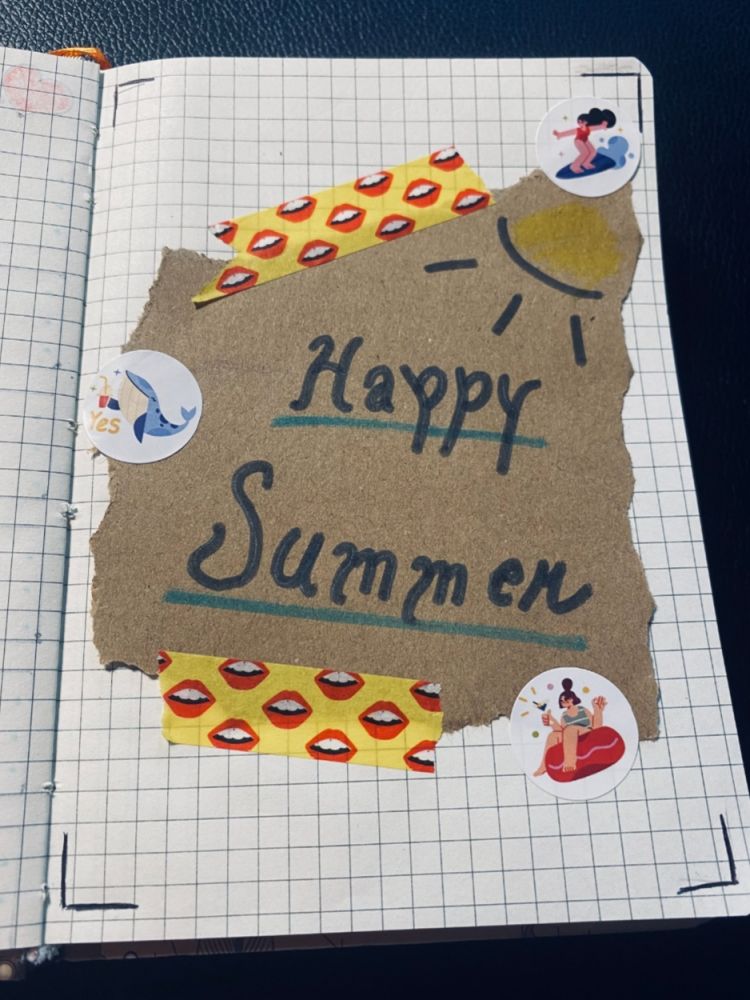 Yes
Happy
Summer